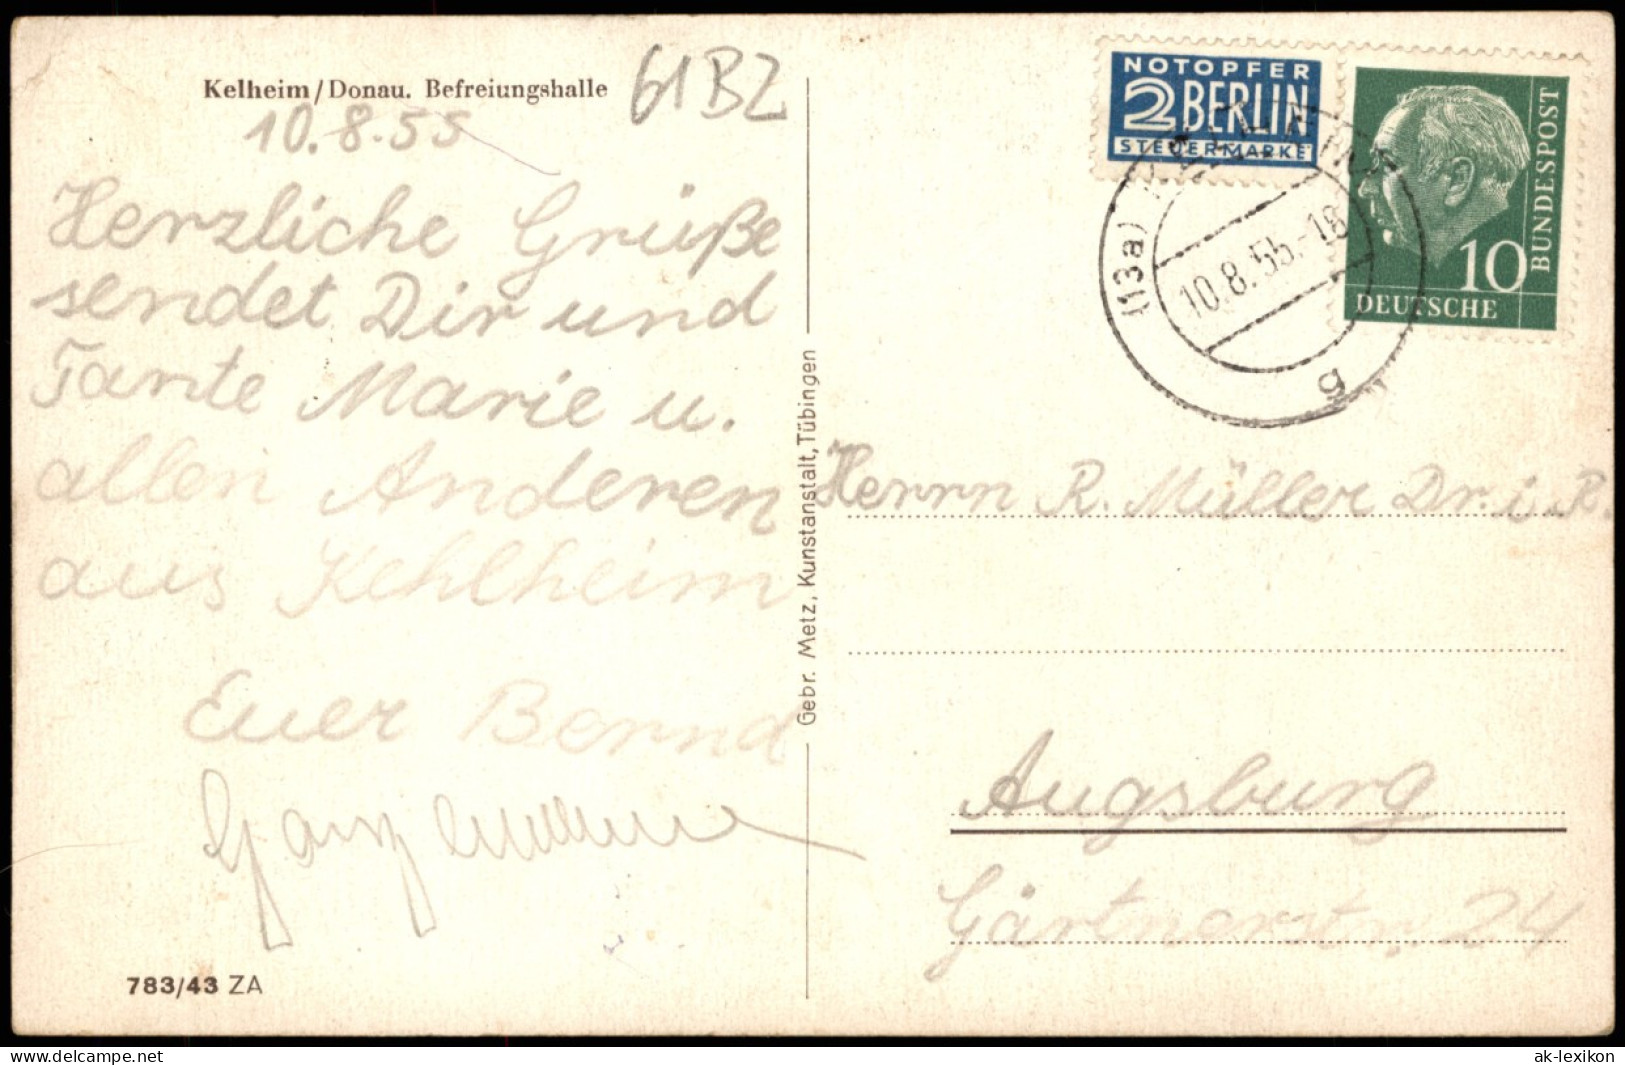 Kelheim/Donau. Befreiungshalle
61BZ
10.8.55
Herzliche Grüße
sendet Dir und
Tante Marie u.
allen Anderen
aus Kehlheim
Euer Bernd
783/43 ZA
Gebr. Metz, Kunstanstalt, Tübingen
NOTOPFER
2 BERLIN
STEUERMARKE
10
DEUTSCHE
BUNDESPOST
(13a)
10.8.55.-18
g
Herrn R. Müller Dr. i. R.
Augsburg
Gärtnerstr. 24
www.delcampe.net
ak-lexikon